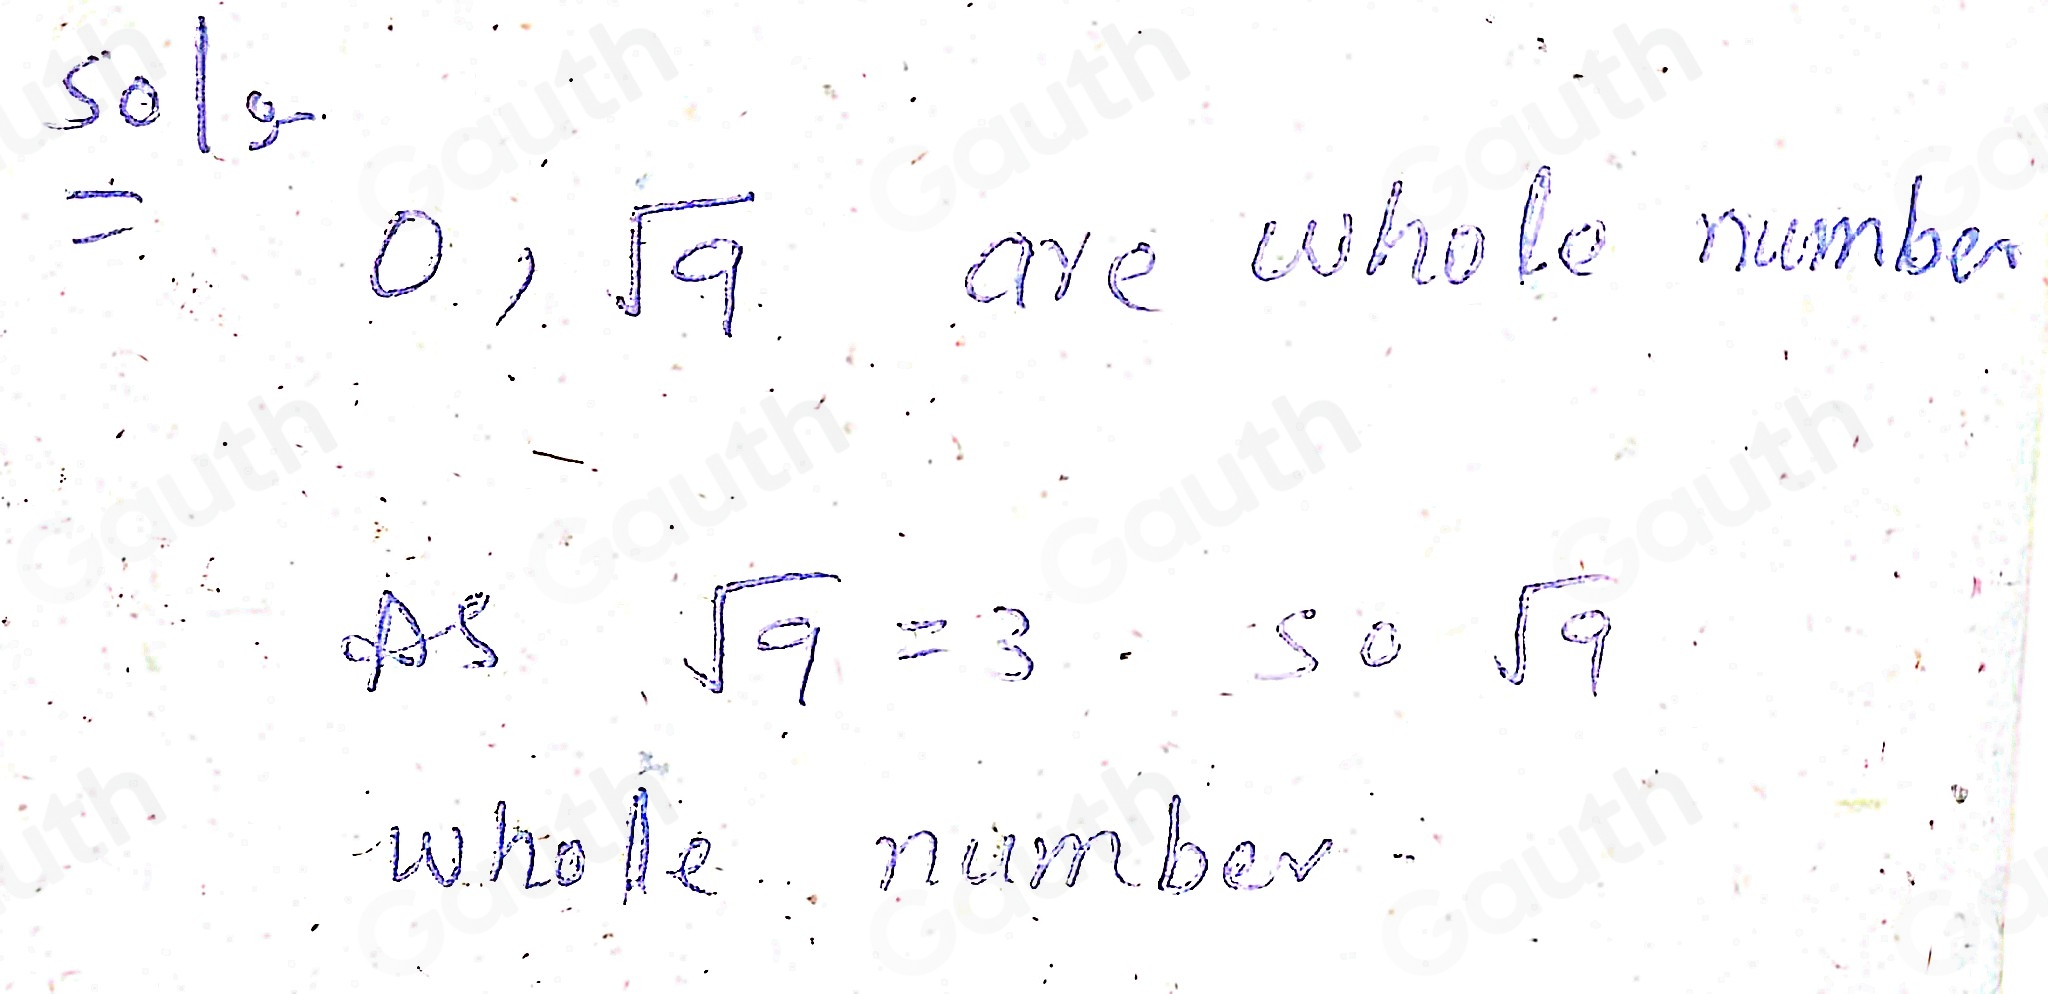 Soln
= 0, √9 are whole number
As √9 = 3. so √9
whole number